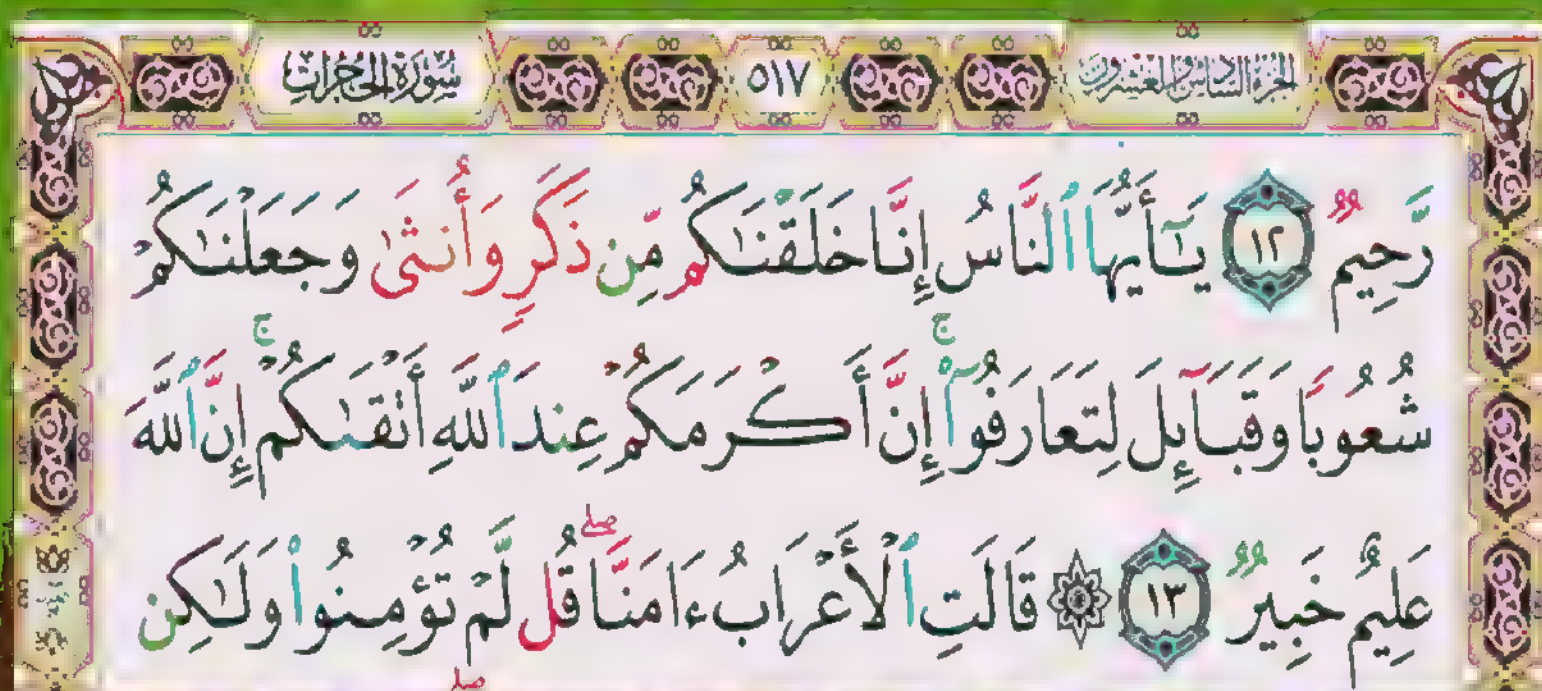 الجزء السادس والعشرون ٥١٧ سورة الحجرات
رَّحِيمٌ ١٢ يَـٰٓأَيُّهَا ٱلنَّاسُ إِنَّا خَلَقْنَـٰكُم مِّن ذَكَرٍ وَأُنثَىٰ وَجَعَلْنَـٰكُمْ
شُعُوبًا وَقَبَآئِلَ لِتَعَارَفُوٓا۟ ۚ إِنَّ أَكْرَمَكُمْ عِندَ ٱللَّهِ أَتْقَىٰكُمْ ۚ إِنَّ ٱللَّهَ
عَلِيمٌ خَبِيرٌ ١٣ ۞ قَالَتِ ٱلْأَعْرَابُ ءَامَنَّا ۖ قُل لَّمْ تُؤْمِنُوا۟ وَلَـٰكِن